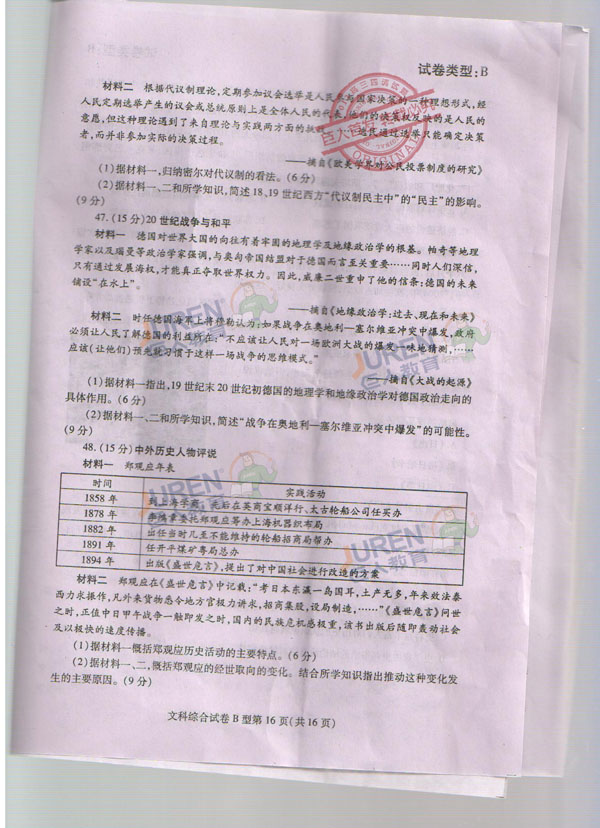 试卷类型:B
材料二 根据代议制理论,定期参加议会选举是人民参与国家决策的一种理想形式,经
人民定期选举产生的议会或总统原则上是全体人民的代表,他们的决策权反映的是人民的
意愿,但这种理论遇到了来自理论与实践两方面的 代通过选举只能确定决策
者,而并非参加实际的决策过程。
——摘自《欧美学界对公民投票制度的研究》
(1)据材料一,归纳密尔对代议制的看法。(6分)
(2)据材料一、二和所学知识,简述18、19世纪西方“代议制民主中”的“民主”的影响。
(9分)
47.(15分)20世纪战争与和平
材料一 德国对世界大国的向往有着牢固的地理学及地缘政治学的根基。帕奇等地理
学家以及瑙曼等政治学家强调,与奥向帝国结盟对于德国而言至关重要……同时人们深信,
只有通过发展海权,才能真正夺取世界权力。因此,威廉二世重申了他的信条:德国的未来
铺设“在水上”。
——摘自《地缘政治学:过去、现在和未来》
材料二 时任德国海军上将穆勒认为:如果战争在奥地利—塞尔维亚冲突中爆发,政府
必须让人民了解德国的利益所在:“不应该让人民对一场欧洲大战的爆发一味地猜测,……
应该(让他们)预先就习惯于这样一场战争的思维模式。”
——摘自《大战的起源》
(1)据材料一指出,19世纪末20世纪初德国的地理学和地缘政治学对德国政治走向的
具体作用。(6分)
(2)据材料一、二和所学知识,简述“战争在奥地利—塞尔维亚冲突中爆发”的可能性。
(9分)
48.(15分)中外历史人物评说
材料一 郑观应年表
时间 实践活动
1858年 到上海学商,先后在英商宝顺洋行、太古轮船公司任买办
1878年 李鸿章委托郑观应筹办上海机器织布局
1882年 出任当时几至不能维持的轮船招商局帮办
1891年 任开平煤矿粤局总办
1894年 出版《盛世危言》,提出了对中国社会进行改造的方案
材料二 郑观应在《盛世危言》中记载:“考日本东瀛一岛国耳,土产无多,年来效法泰
西力求振作,凡外来货物悉令地方官极力讲求,招商集股,设局制造,……”《盛世危言》问世
之时,正值中日甲午战争一触即发之时,国内的民族危机感极重,该书出版后随即轰动社会
及以极快的速度传播。
(1)据材料一概括郑观应历史活动的主要特点。(6分)
(2)据材料一、二,概括郑观应的经世取向的变化。结合所学知识指出推动这种变化发
生的主要原因。(9分)
文科综合试卷B型第16页(共16页)
JUREN
巨人教育
JUREN
巨人教育
JUREN
JUREN
巨人教育
ORIGINAL